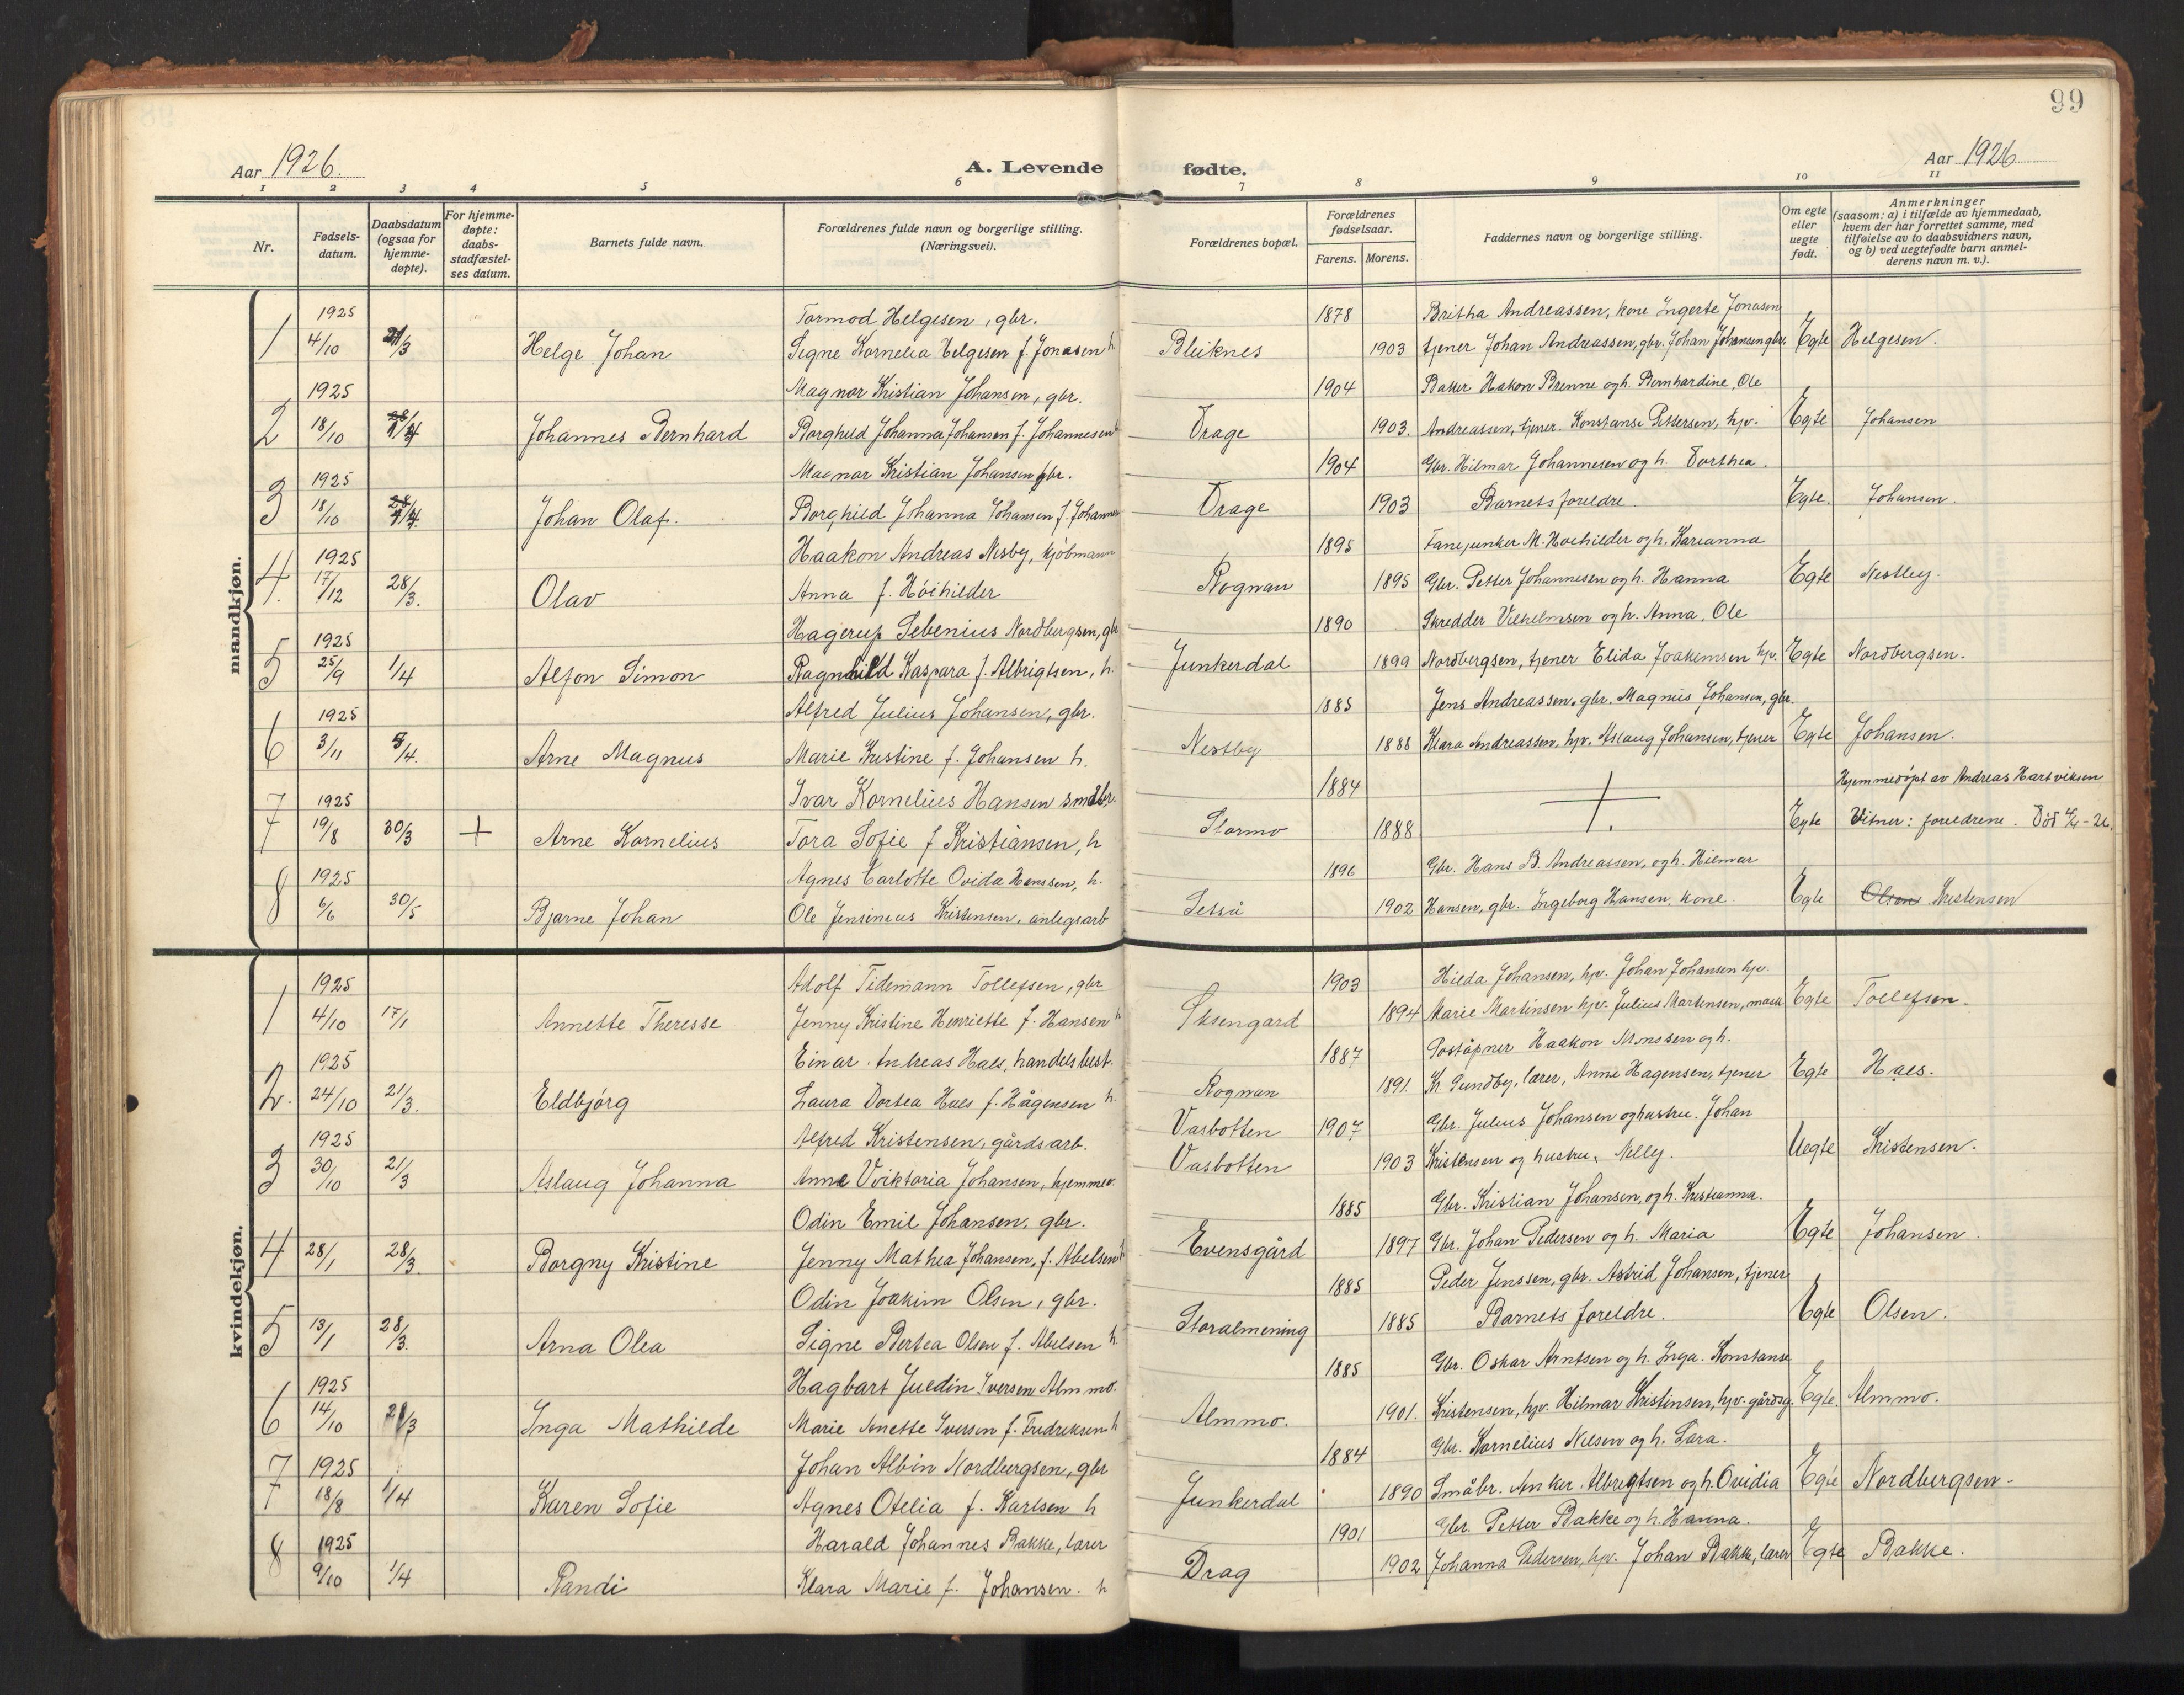 99
Aar 1926.
A. Levende fødte.
Aar 1926
1 2 3 4 5 6 7 8 9 10 11
Nr.
Fødsels-datum.
Daabsdatum (ogsaa for hjemme-døpte).
For hjemme-døpte: daabs-stadfæstel-ses datum.
Barnets fulde navn.
Forældrenes fulde navn og borgerlige stilling. (Næringsvei).
Forældrenes bopæl.
Forældrenes fødselsaar.
Farens. Morens.
Faddernes navn og borgerlige stilling.
Om egte eller uegte født.
Anmerkninger (saasom: a) i tilfælde av hjemmedaab, hvem der har forrettet samme, med tilføielse av to daabsvidners navn, og b) ved uegtefødte barn anmel-derens navn m. v.).
mandkjøn.
1925 Tormod Helgesen, gbr. 1878 Britha Andreassen, kone Ingerte Jonasen
1 4/10 21/3 Helge Johan Signe Kornelia Helgesen f. Jonasen h Bleiknes 1903 tjener Johan Andreassen, gbr. Johan Johansen gbr. Egte Helgesen.
1925 Magnar Kristian Johansen, gbr. 1904 Baker Hakon Brenne og h. Bernhardine, Ole
2 18/10 1/4 Johannes Bernhard Borghild Johanna Johansen f. Johannesen h Drage 1903. Andreassen, tjener. Konstanse Pettersen, hjv. Egte Johansen
1925 Magnar Kristian Johansen gbr. 1904 Gbr. Hilmar Johannesen og h. Dorthea.
3 18/10 1/4 Johan Olaf. Borghild Johanna Johansen f. Johannes Drage 1903 Barnets foreldre. Egte. Johansen.
1925 Haakon Andreas Nesby, kjøbmann 1895 Fanejunker M. Hoehilder og h. Karianna
4. 17/12 28/3. Olav Anna f. Höihilder Rognan 1895 Gbr. Petter Johannesen og h. Hanna Egte Nestby.
1925 Hagerup Sebenius Nordbergsen, gbr 1890 Skredder Vilhelmsen og h. Anna, Ole
5 25/9 1/4 Alfon Simon Ragnhild Kaspara f. Albrigtsen, h. Junkerdal 1899 Nordbergsen, tjener Elida Joakimsen hjv. Egte Nordbergsen.
1925 Alfred Julius Johansen, gbr. 1885 Jens Andreassen, gbr. Magnus Johansen, gbr.
6 3/11 5/4. Arne Magnus Marie Kristine f. Johansen h. Nestby 1888 Klara Andreassen, hjv. Aslaug Johansen, tjener Egte Johansen.
1925 Ivar Kornelius Hansen småbr. 1884 Hjemmedöpt av Andreas Hartviksen
7 19/8 30/3 + Arne Kornelius Tora Sofie f Kristiansen, h Stormo 1888 + Egte Vitner: foreldrene. Död
1925 Agnes Carlotte Ovida Hanssen, h. 1896 Gbr. Hans B. Andreassen, og h. Hilmar
8 6/6 30/5 Bjarne Johan Ole Jensineus Kristensen, anlegsarb Setså 1902 Hansen, gbr. Ingeborg Hansen, kone. Egte Olsen Kristensen
kvindekjøn.
1925 Adolf Tidemann Tollefsen, gbr 1903 Hilda Johansen, hjv. Johan Johansen hjv.
1 4/10 17/1 Annette Theresse Jenny Kristine Henriette f. Hansen h Sksengard 1894 Marie Martinsen hjv. Julius Martinsen, Egte Tollefsen.
1925 Einar Andreas Haes, handelsbest. 1887 Poståpner Haakon Monssen og h.
2. 24/10 21/3. Eldbjörg Laura Dortea Haes f. Hågensen h. Rognan 1891. Kr. Sundby, lærer, Anne Hagensen, tjener Egte Haes.
1925 Alfred Kristensen, gårdsarb. Vasbotten 1907 Gbr. Julius Johansen og hustru. Johan
3 30/10 21/3 Aslaug Johanna Anne Vviktoria Johansen, hjemmev. Vasbotten 1903 Kristensen og hustru, Nelly. Uegte Kristensen.
Odin Emil Johansen, gbr. 1885 Gbr. Kristian Johansen, og h. Kristianna.
4 28/1 28/3. Borgny Kristine Jenny Mathea Johansen, f. Abelsen h Evensgård 1897 Gbr. Johan Pedersen og h. Maria Egte Johansen.
Odin Joakim Olsen, gbr. 1885 Peder Jenssen, gbr. Astrid Johansen, tjener
5 13/1 28/3. Arna Olea Signe Bertea Olsen f. Abelsen h. Storalmening 1885 Barnets foreldre. Egte Olsen.
1925 Hagbart Juedin Iversen Almmo. 1885 Gbr. Oskar Arntsen og h. Inga. Konstanse
6 14/10 21/3 Inga Mathilde Marie Anette Iversen f. Fredriksen h Almmo. 1901. Kristensen, hjv. Hilmar Kristinsen, hjv. gårdsg. Egte. Almmo.
1925 Johan Albin Nordbergsen, gbr 1884 Gbr. Kornelius Nilsen og h. Sara.
7 18/8 1/4 Karen Sofie Agnes Otelia f. Karlsen h Junkerdal 1890 Småbr. Anker Albrigtsen og h. Ovidia Egte Nordbergsen.
1925 Harald Johannes Bakke, lærer 1901 Gbr. Petter Bakke og h. Hanna.
8 9/10 1/4 Randi Klara Marie f. Johansen. h Drag 1902 Johanna Pedersen, hjv. Johan Bakke, lærer Egte Bakke.